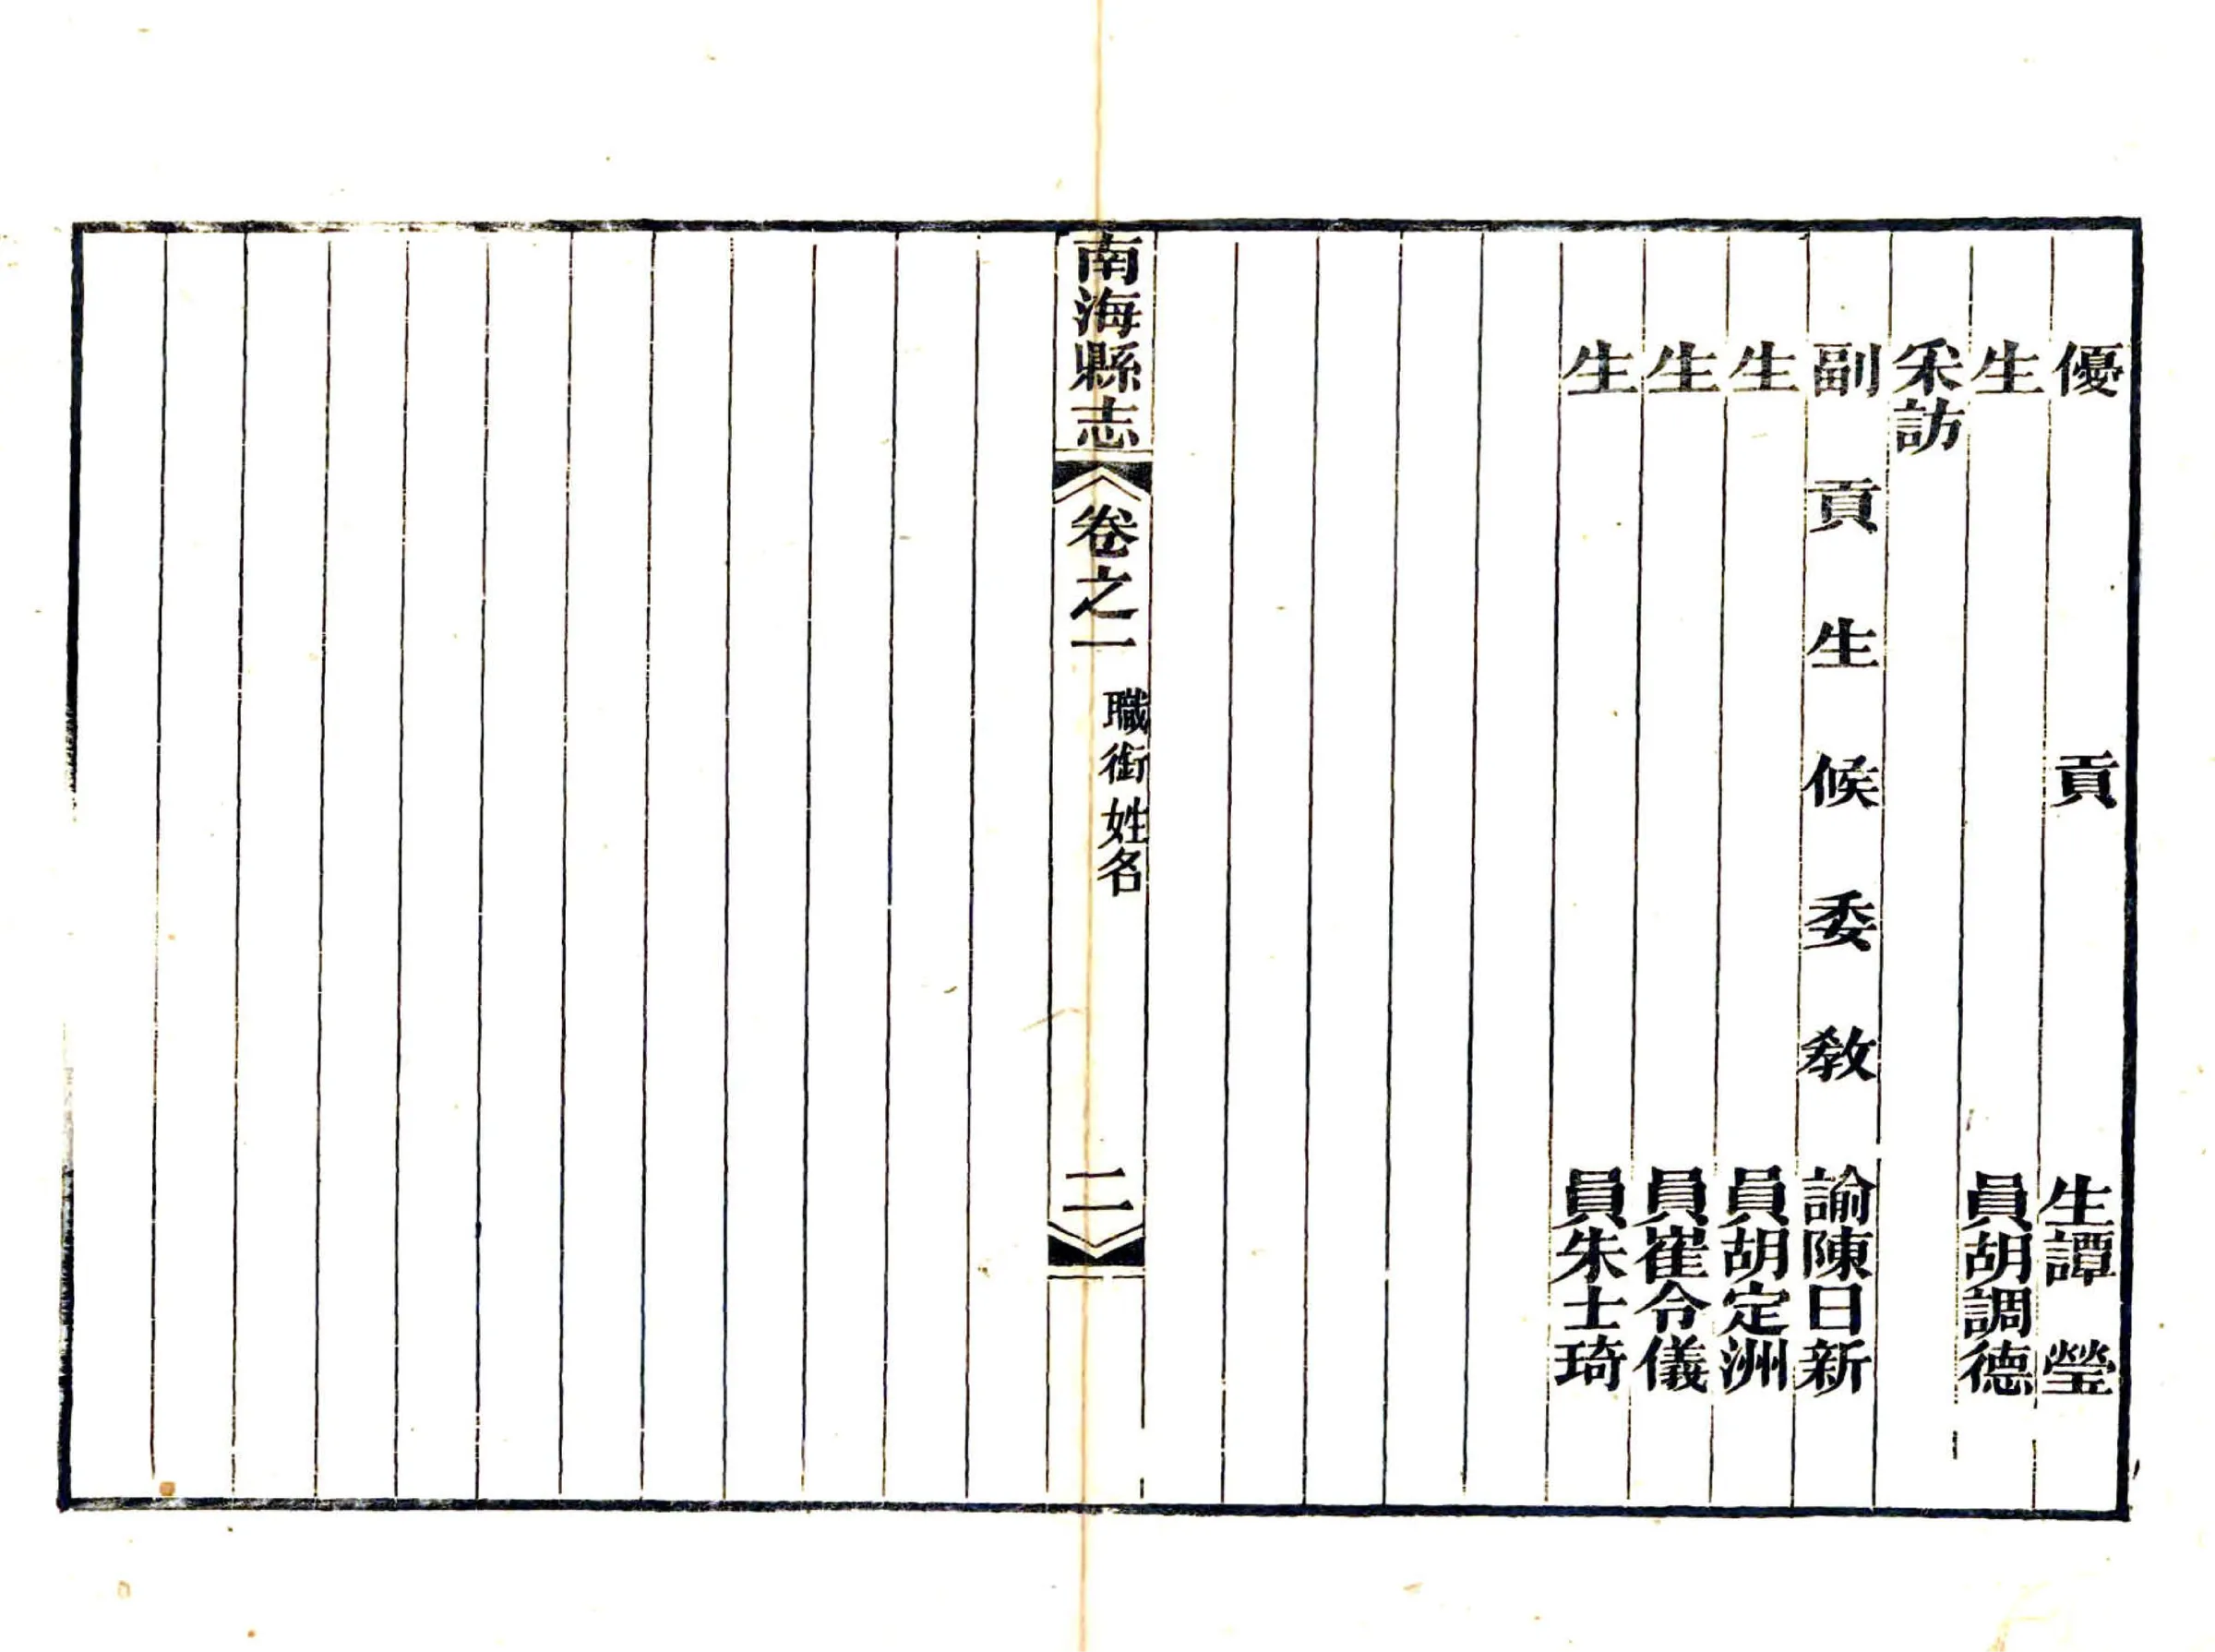 優貢生譚瑩
生員胡調德
采訪
副貢生候委敎諭陳日新
生員胡定洲
生員崔令儀
生員朱士琦
南海縣志 卷之一 職銜姓名 二